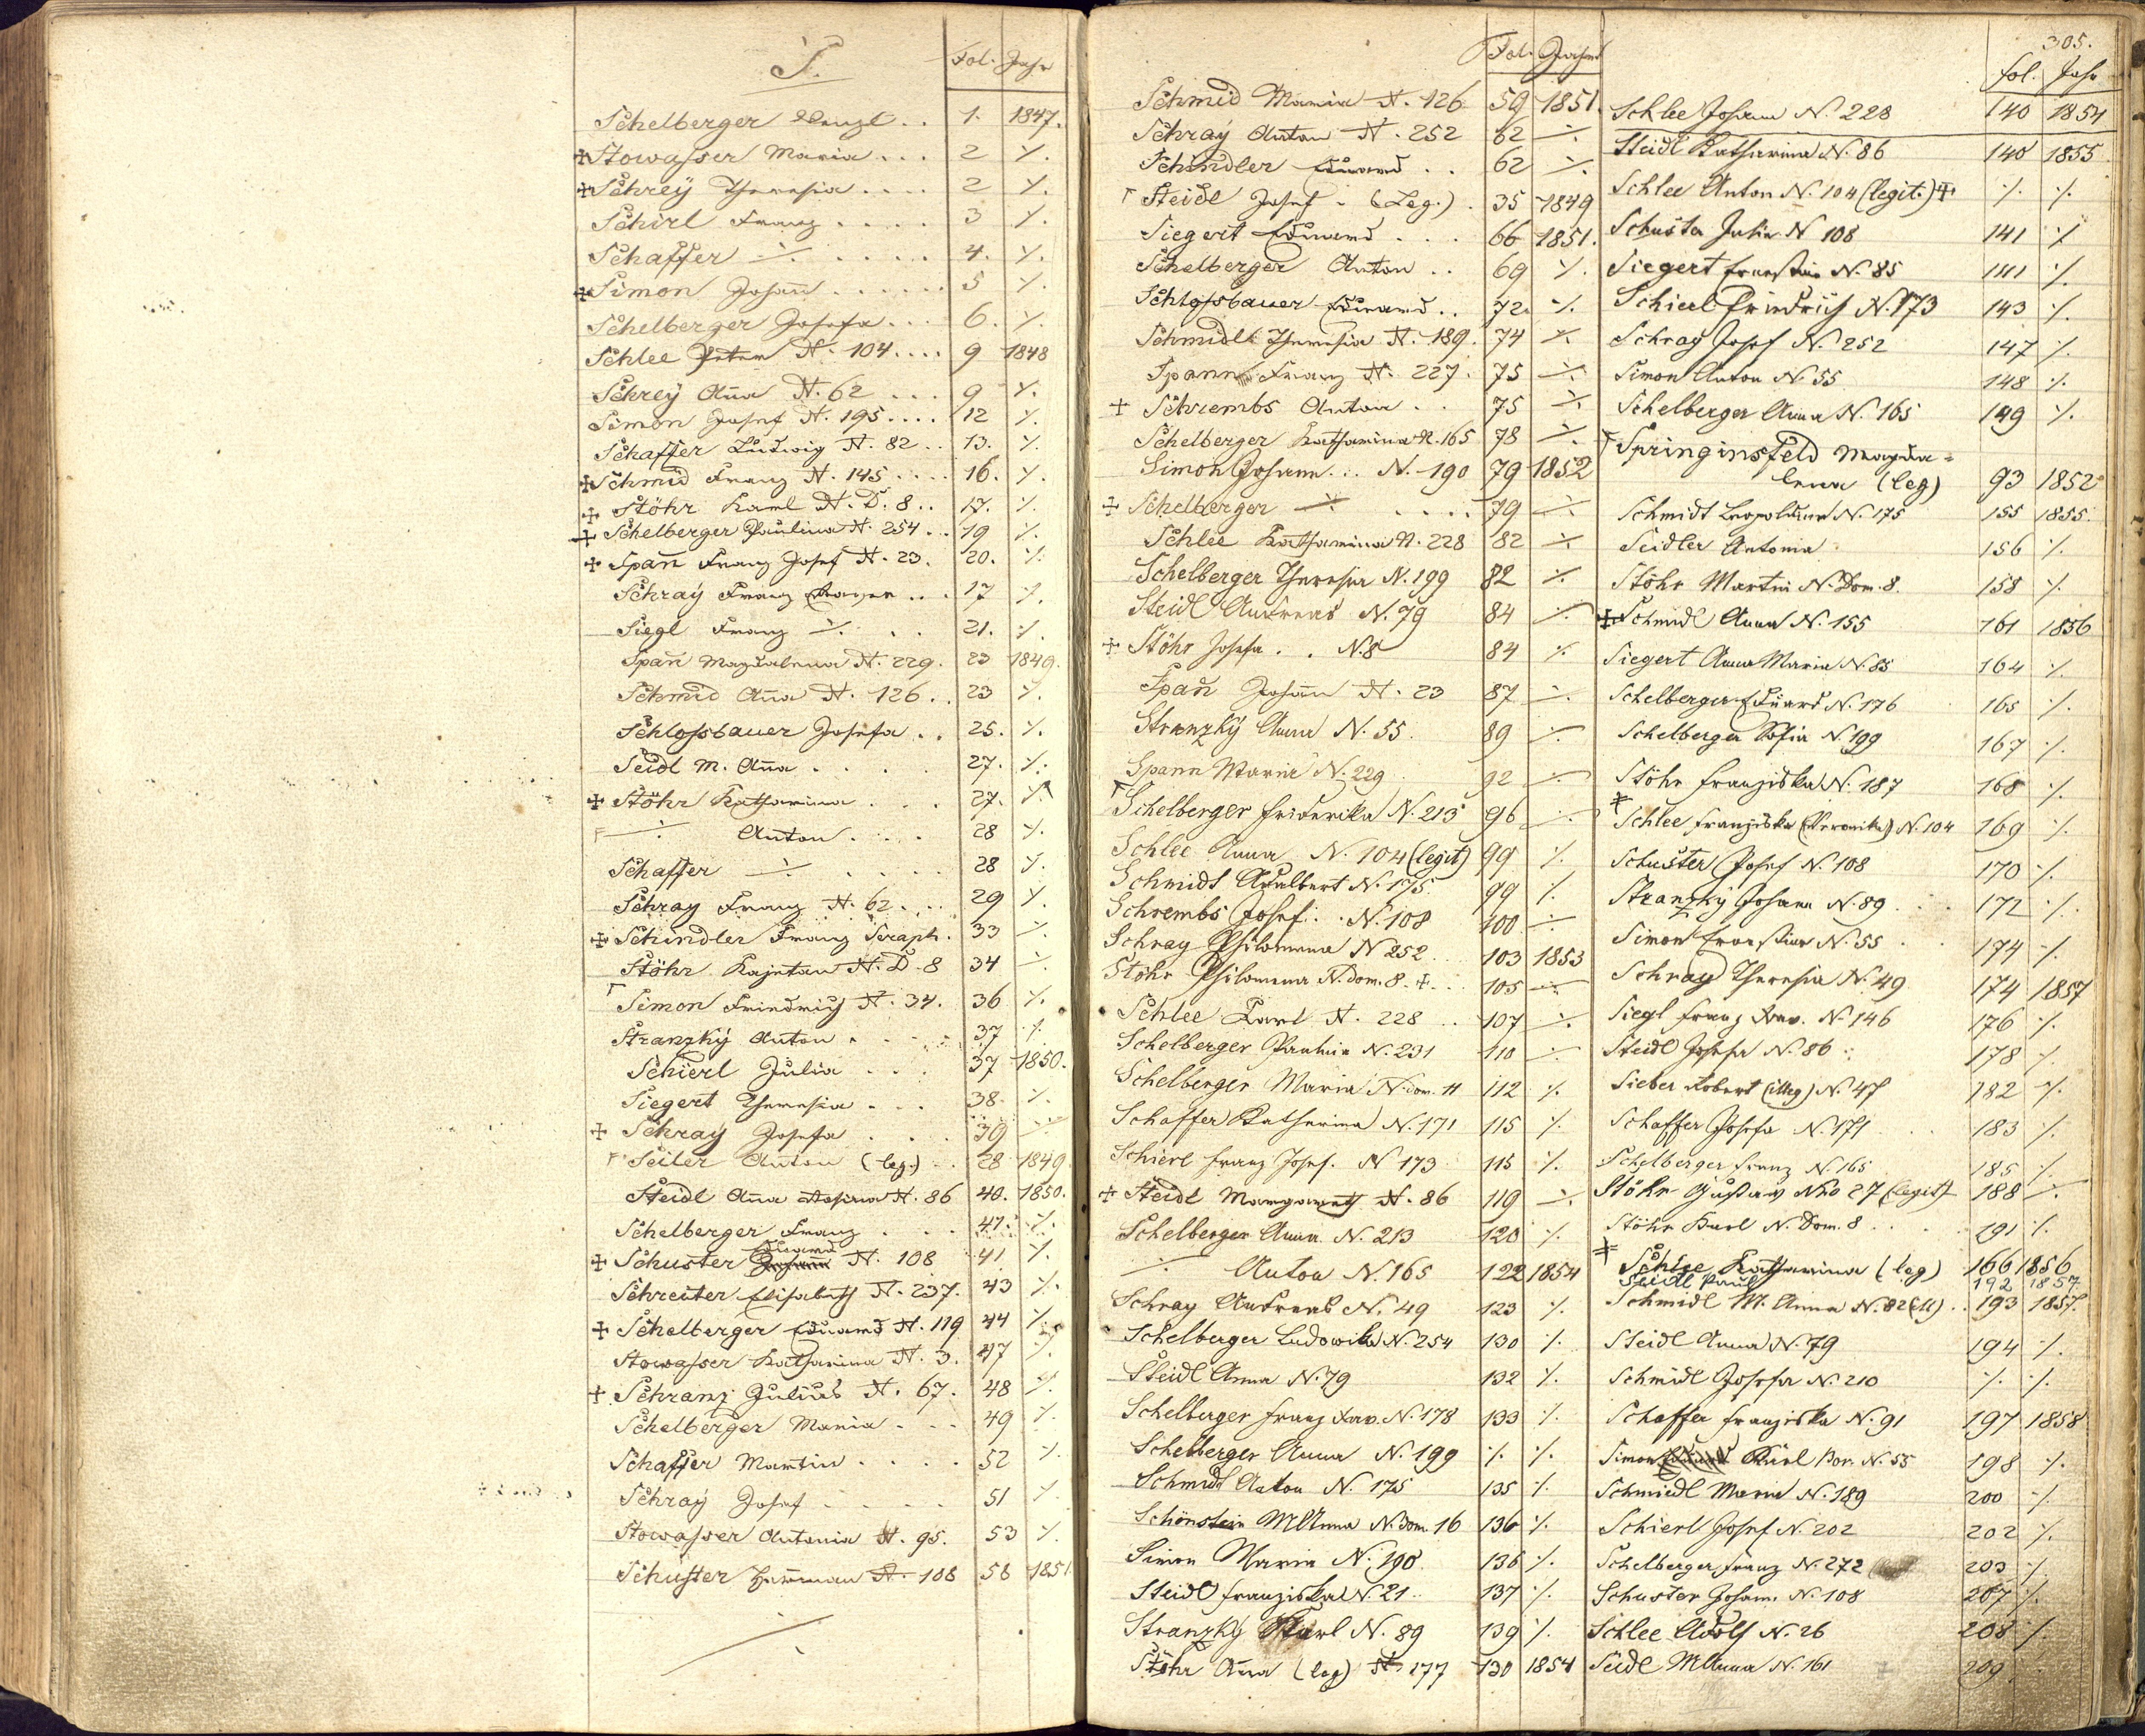 S.
Fol. Jahr
Schelberger Wenzl . . 1. 1847.
+ Stowasser Maria . . . 2 ./.
+ Schrey Theresia . . . . 2 ./.
Schirl Franz . . . . 3 ./.
Schaffer ./. . . . . . 4. ./.
+ Simon Johan̄ . . . . . . 5 ./.
Schelberger Josefa . . . 6. ./.
Schlee Peter N. 104 . . . . 9 1848
Schrey Anna N. 62 . . . 9 ./.
Simon Josef N. 195 . . . . 12 ./.
Schaffer Ludwig N. 82 . . 13. ./.
+ Schmid Franz N. 145 . . . . 16. ./.
+ Stöhr Karl N. D. 8 . . 17. ./.
+ Schelberger Paulina N. 254 . . 19 ./.
+ Span̄ Franz Josef N. 23. 20. ./.
Schray Franz . . . 17 ./.
Siegl Franz ./. . . 21. ./.
Span̄ Magdalena N. 229. 23 1849.
Schmid Anna N. 126 . . 23 ./.
Schlossbauer Josefa . . 25. ./.
Seidl M. Anna . . . . 27. ./.
+ Stöhr Katharina . . . 27. ./.
./. Anton . . . . 28 ./.
Schaffer ./. . . . . . 28 ./.
Schray Franz N. 62 . . . 29 ./.
+ Schindler Franz Seraph. 33 ./.
Stöhr Kajetan N. D. 8 34 ./.
Simon Friedrich N. 34. 36 ./.
Stranzky Anton . . . . 37 ./.
Schierl Julia . . . 37 1850.
Siegert Theresia . . . 38. ./.
+ Schray Josefa . . . 39 ./.
Seiler Anton (leg.) . . 28 1849.
Steidl Anna N. 86 40. 1850.
Schelberger Franz . . . 41. ./.
Eduard
+ Schuster Johann N. 108 41 ./.
Schreiter Elisabeth N. 237. 43 ./.
+ Schelberger Eduard N. 119 44 ./.
Stowasser Katharina N. 3. 47 ./.
+ Schranz Julius N. 67. 48 ./.
Schelberger Maria . . . 49 ./.
Schaffer Martin . . . . 52 ./.
Schray Josef . . . . . 51 ./.
Stowasser Antonia N. 95. 53 ./.
Schuster Herrman N. 108 58 1851
Fol. Jahr
Schmid Maria N. 126 59 1851.
Schray Anton N. 252 62 ./.
Schindler Eduard . . 62 ./.
Steidl Josef . (Leg.) . 35 1849
Siegert Eduard . . . 66 1851.
Schelberger Anton . . 69 ./.
Schlossbauer Eduard . . 72. ./.
Schmidl Theresia N. 189. 74 ./.
Spann Franz N. 227. 75 ./.
+ Schrembs Anton . . 75 ./.
Schelberger Katharina N. 165 78 ./.
Simon Johann . . . N. 190 79 1852
+ Schelberger ./. . . . . 79 ./.
Schlee Katharina N. 228 82 ./.
Schelberger Theresia N. 199 82 ./.
Steidl Andreas N. 79 84 ./.
+ Stöhr Josefa . . N. 8 84 ./.
Span̄ Johan̄ N. 23 87 ./.
Stranzky Anna N. 55. 89 ./.
Spann Maria N. 229 92 ./.
Schelberger Friderika N. 213 96 ./.
Schlee Anna N. 104 (legit) 99 ./.
Schmidt Adalbert N. 175 99 ./.
Schrembs Josef . . N. 108 100 ./.
Schray Philomena N 252 . . 103 1853
Stöhr Philomena N. dom. 8. + . . . 105 ./.
Schlee Karl N. 228 . . 107 ./.
Schelberger Paulina N. 231 110 ./.
Schelberger Maria N. dom. 11 112 ./.
Schaffer Katharina N. 171 115 ./.
Schierl Franz Josef. N 173 115 ./.
+ Steidl Margareth N. 86 119 ./.
Schelberger Anna N. 213 120 ./.
./. Anton N. 165 122 1854
Schray Andreas N. 49 123 ./.
Schelberger Ludowika N. 254 130 ./.
Steidl Anna N. 79 132 ./.
Schelberger Franz Xav. N. 178 133 ./.
Schelberger Anna N. 199 ./. ./.
Schmidl Anton N. 175 135 ./.
Schönstein M Anna N. Dom. 16 136 ./.
Simon Maria N. 190 136 ./.
Steidl Franziska N. 21 . . 137 ./.
Stranzky Karl N. 89 139 ./.
Stöhr Anna (leg) N. 177 130 1854
305.
fol. Jahr
Schlee Johann N. 228 140 1854
Steidl Katharina N. 86 140 1855
Schlee Anton N. 104 (legit.) + ./. ./.
Schuster Julia N 108 141 ./.
Siegert Ernestine N. 85 141 ./.
Schierl Friedrich N. 173 143 ./.
Schray Josef N. 252 147 ./.
Simon Anton N. 55 148 ./.
Schelberger Anna N. 165 149 ./.
Springinsfeld Magda=
lena (leg) 93 1852
Schmidt Leopoldine N. 175 155 1855.
Seidler Antonia 156 ./.
Stöhr Martin N. Dom. 8. 158 ./.
+ Schmidl Anna N. 155 161 1856
Siegert Anna Maria N. 85 164 ./.
Schelberger Eduard N. 176 165 ./.
Schelberger Sofia N. 199 167 ./.
Stöhr Franziska N. 187 168 ./.
Schlee Franziska (Veronika) N. 104 169 ./.
Schuster Josef N. 108 170 ./.
Stranzky Johann N. 89 . . . 172 ./.
Simon Ernestine N. 55 . . 174 ./.
Schray Theresia N. 49 174 1857
Siegl Franz Xav. N. 146 176 ./.
Steidl Josefa N. 86 178 ./.
Sieber Robert (illeg) N. 47 182 ./.
Schaffer Josefa N. 171 . . 183 ./.
Schelberger Franz N. 165 185 ./.
Stöhr Gustav Nro 27 (legit) 188 ./.
Stöhr Karl N. Dom. 8 . . . . 191 ./.
Schlee Katharina (leg) 166 1856
Seidl Paul 192 1857
Schmidl M. Anna N. 82 . . 193 1857.
Steidl Anna N. 79 194 ./.
Schmidl Josefa N. 210 ./. ./.
Schaffer Franziska N. 91 197 1858
Simon Karl Bor. N. 55 198 ./.
Schmiedl Maria N. 189 200 ./.
Schierl Josef N. 202 202 ./.
Schelberger Franz N. 272 203 ./.
Schuster Johann. N. 108 207 ./.
Schlee Adolf N. 26 208 ./.
Seidl M Anna N. 161 209